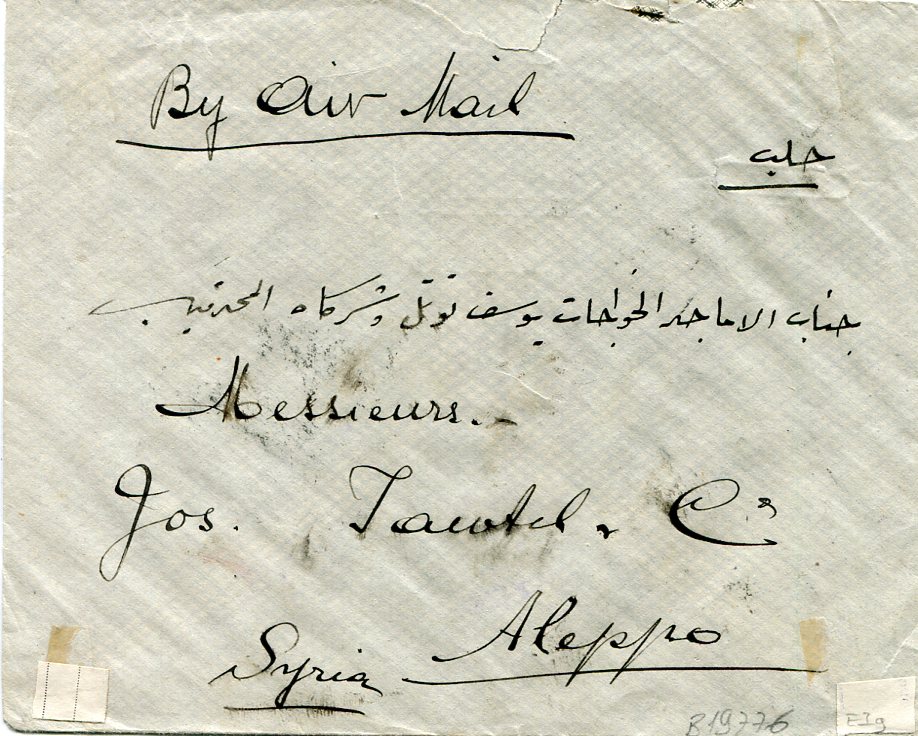 By Air Mail
حلب
جناب الاماجد الخواجات يوسف توتل وشركاه المحترمين
Messieurs.-
Jos. Tawtel & Cº
Aleppo
Syria
B19776